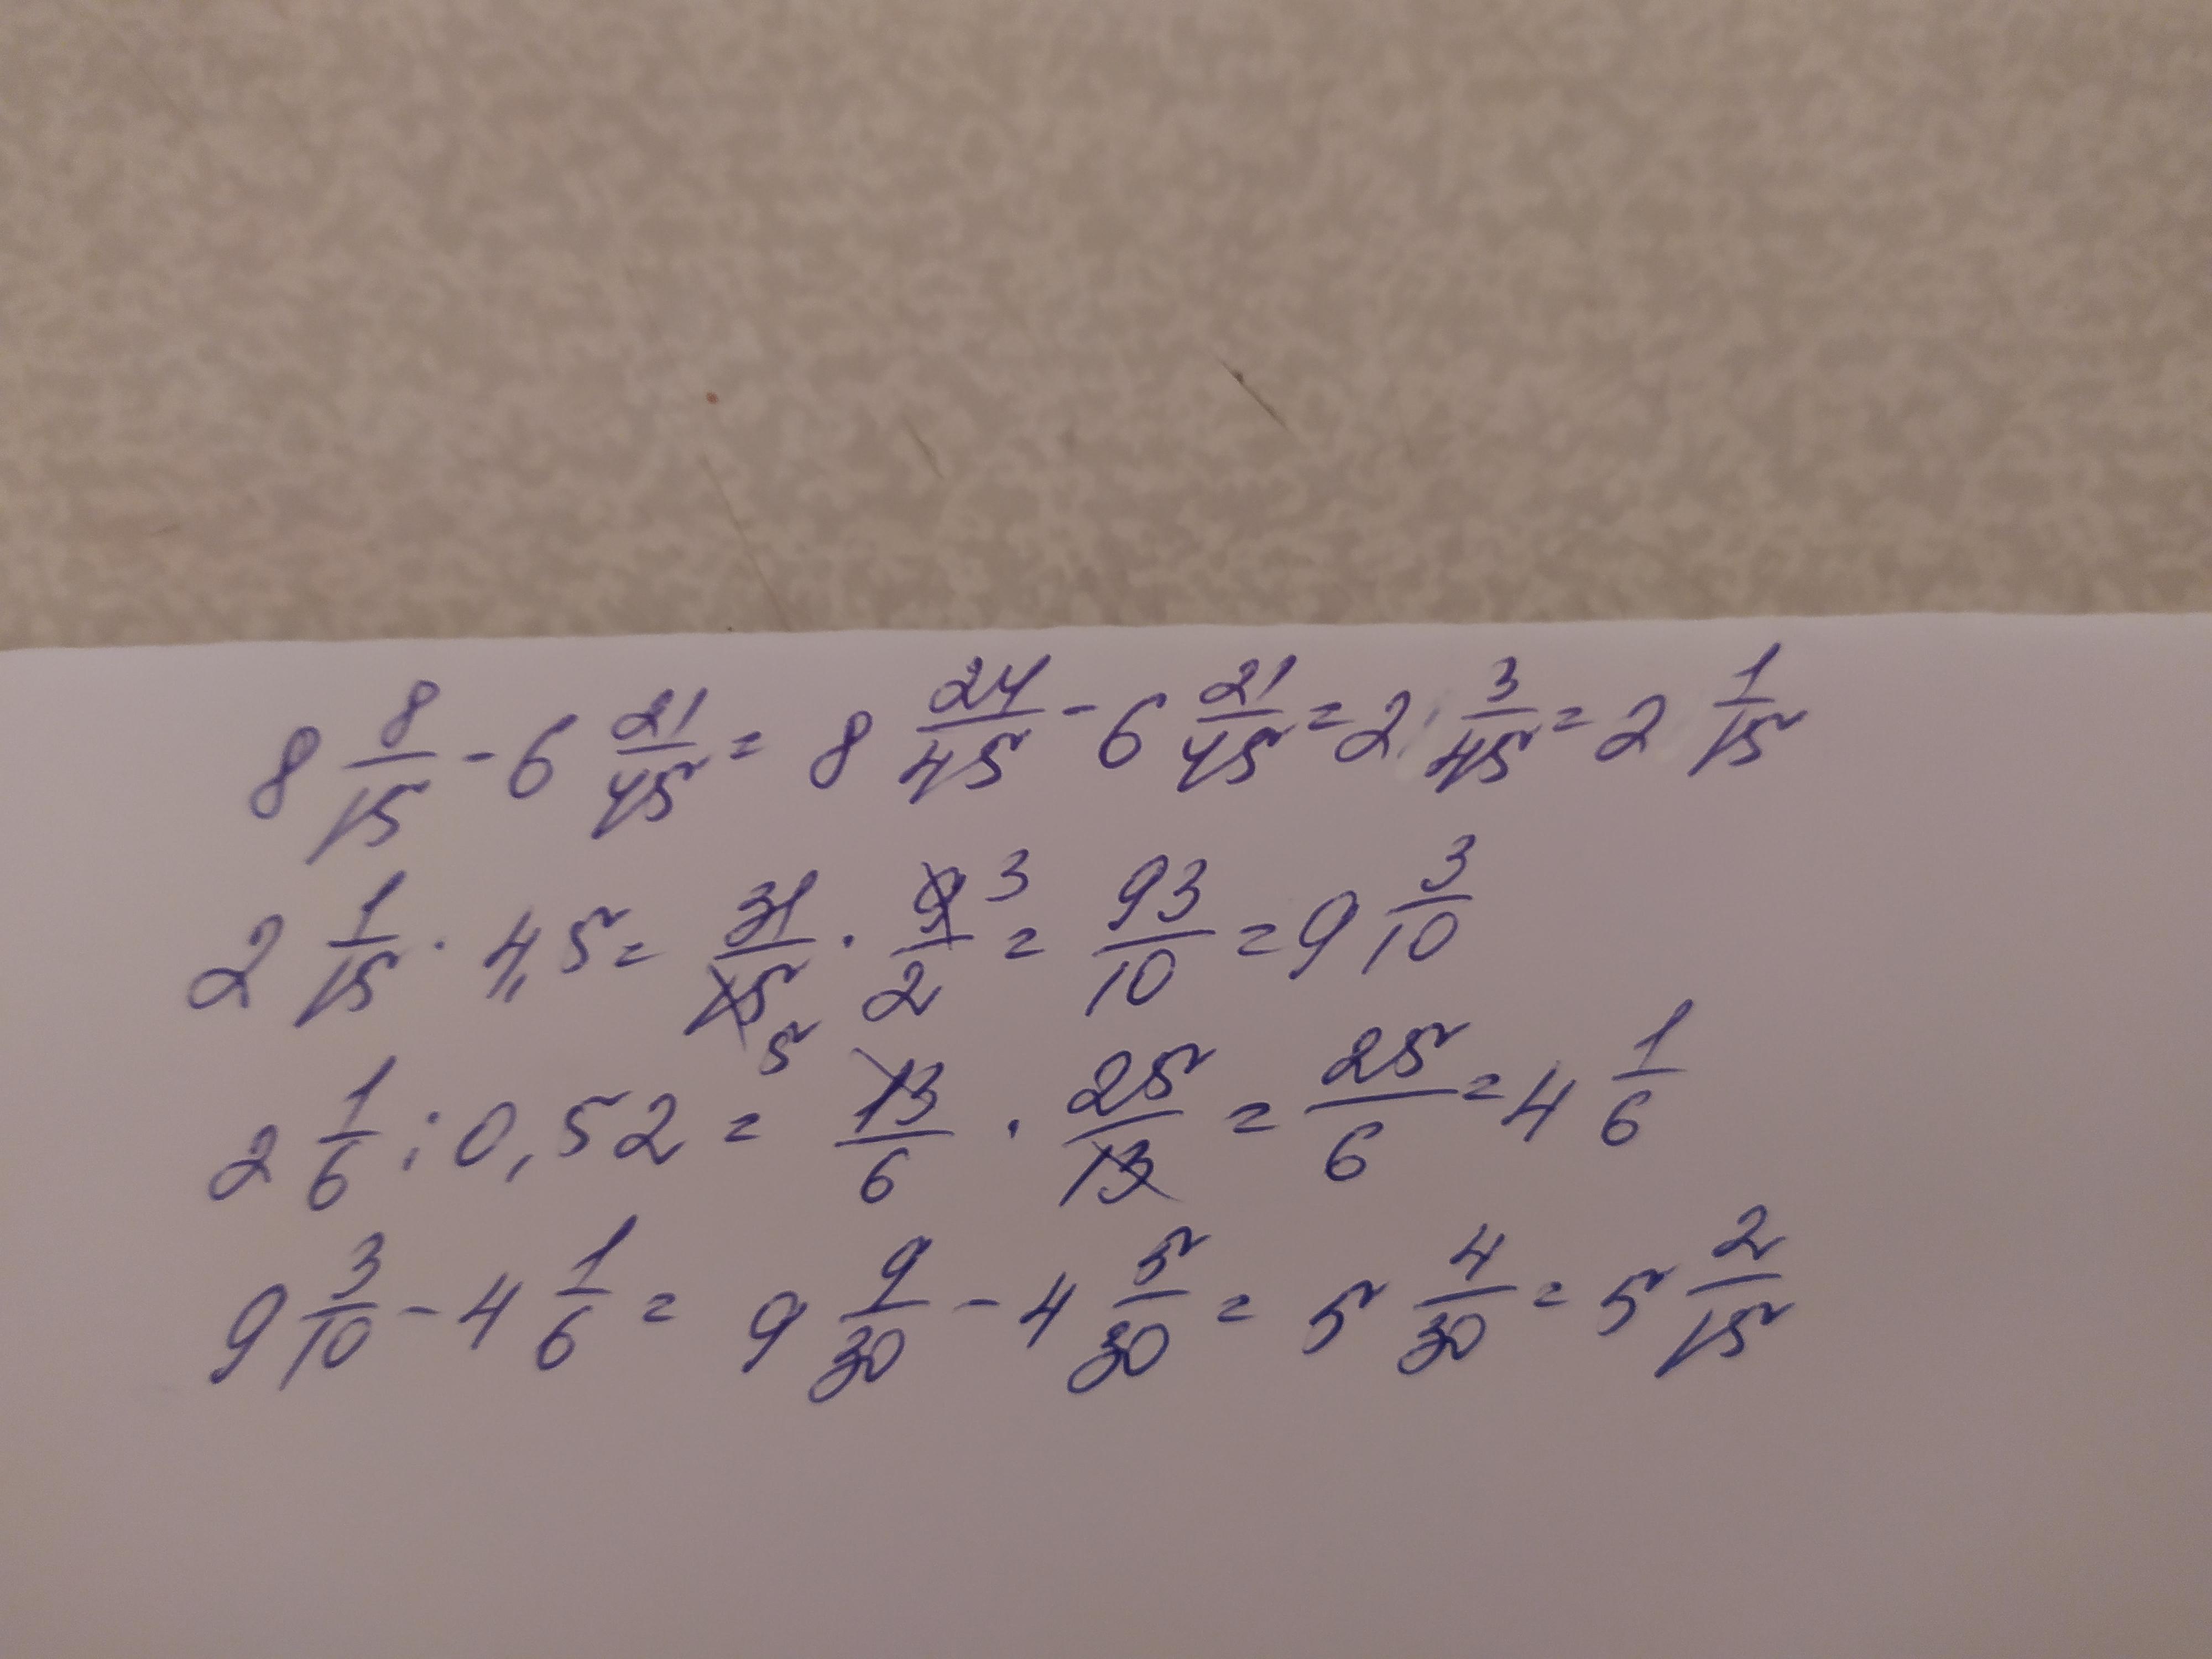 8 8/15 - 6 21/45 = 8 24/45 - 6 21/45 = 2 3/45 = 2 1/15
2 1/15 · 4,5 = 31/15 5 · 9/2 3 = 93/10 = 9 3/10
2 1/6 : 0,52 = 13/6 · 25/13 = 25/6 = 4 1/6
9 3/10 - 4 1/6 = 9 9/30 - 4 5/30 = 5 4/30 = 5 2/15